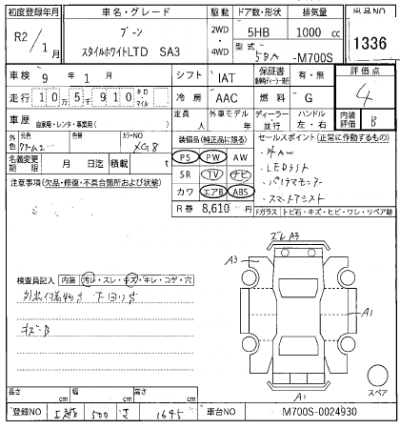 初度登録年月 車名・グレード 駆動 ドア数・形状 排気量 出品NO
R2/1月 ブーン 2WD・4WD 5HB 1000 cc 1336
スタイルホワイトLTD SA3 型式 5BA -M700S
車検 9年 1月 シフト IAT 保証書 有・無 評価点
走行 10万5千910 キロ・マイル 冷房 AAC 燃料 G 4
車歴 自家用・レンタ・事業用( ) 定員 人 外車モデル 年 ディーラー 並行 ハンドル 左・右 内装評価 B
外色 元色 カラーNO X68 装備品(純正品に限る) セールスポイント(正常に作動するもの)
PS PW AW ・外AW
名義変更期限 月 日迄 積載 t SR TV ナビ ・LEDライト
注意事項(欠品・修復・不具合箇所および状態) カワ エアB ABS ・スマートアシスト
R券 8,610 Fガラス トビ石・キズ・ヒビ・ワレ・リペア跡
ズレ A3
A3
検査員記入 内装 汚レ・スレ・キズ・キレ・コゲ・穴
A1
キズB
スペア
長さ cm 幅 cm 高さ cm A1
登録NO 500 1645 車台NO M700S-0024930